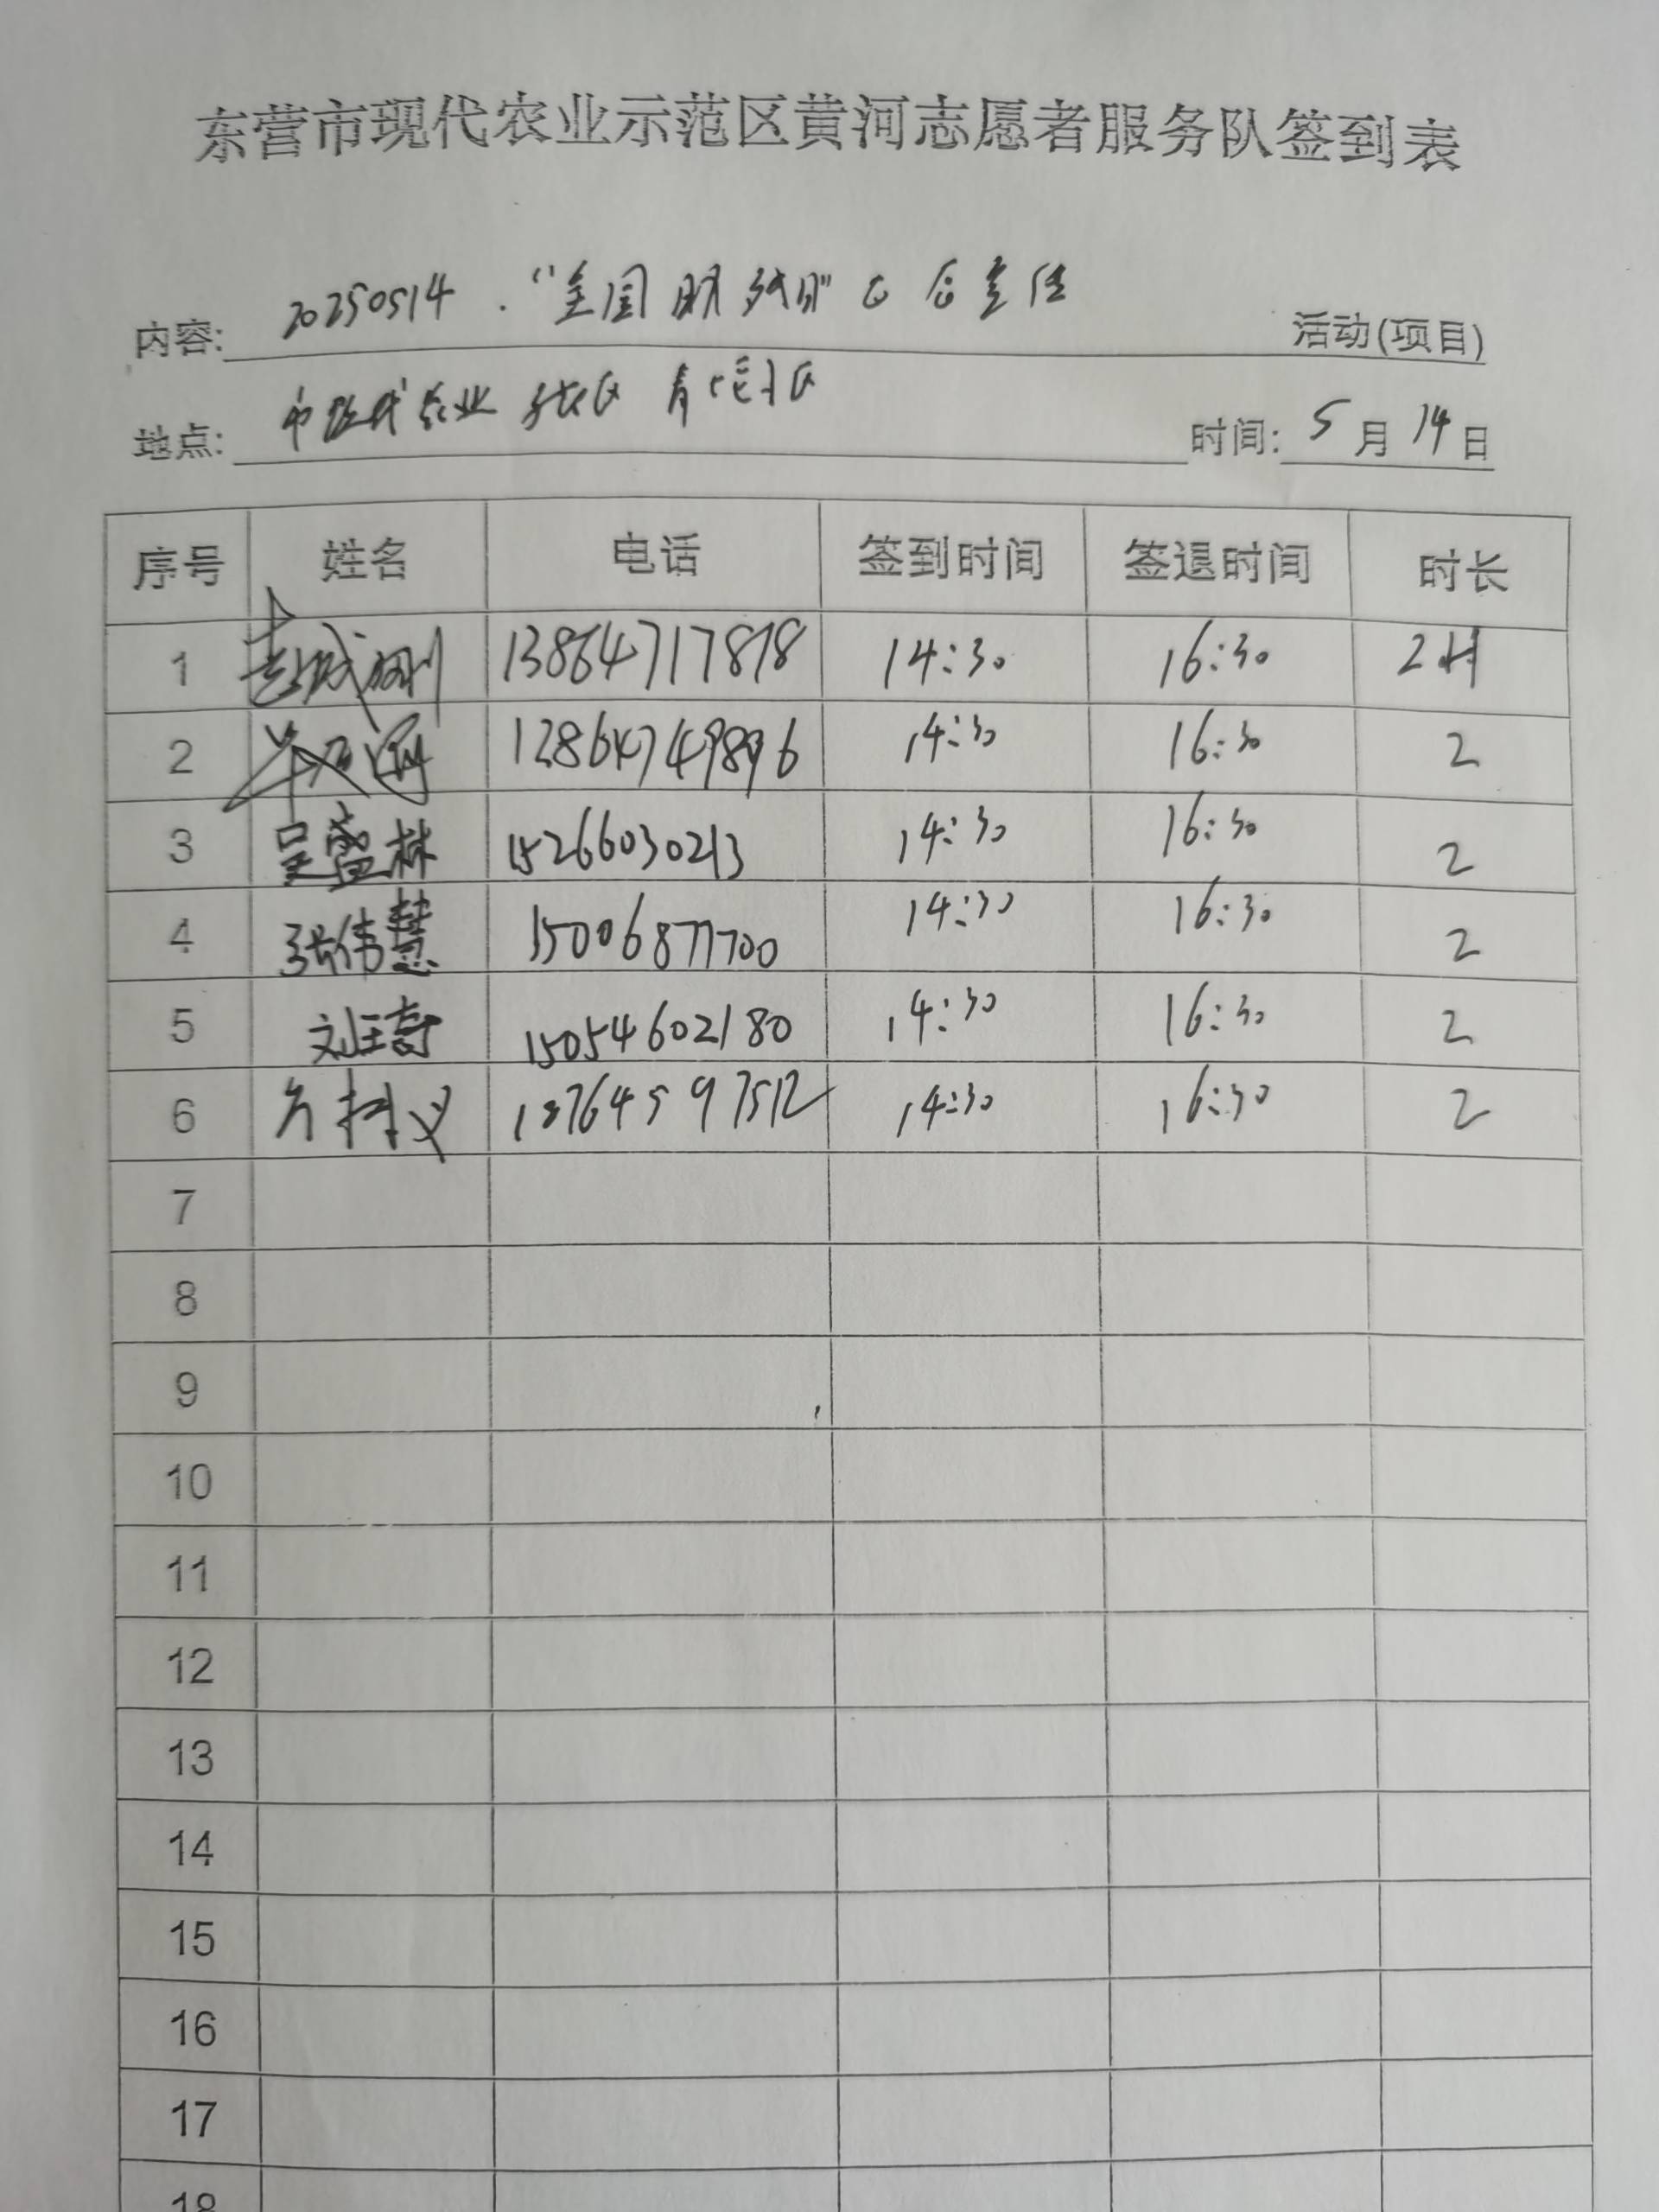 东营市现代农业示范区黄河志愿者服务队签到表
内容: 20250514."全国防灾 活动(项目)
地点: 市现代农业 时间: 5月14日
序号 姓名 电话 签到时间 签退时间 时长
1 13864717878 14:30 16:30 2H
2 14:30 16:30 2
3 吴盛林 15266030213 14:30 16:30 2
4 张伟慧 15006877700 14:30 16:30 2
5 刘廷奇 15054602180 14:30 16:30 2
6 14:30 16:30 2
7
8
9
10
11
12
13
14
15
16
17
18